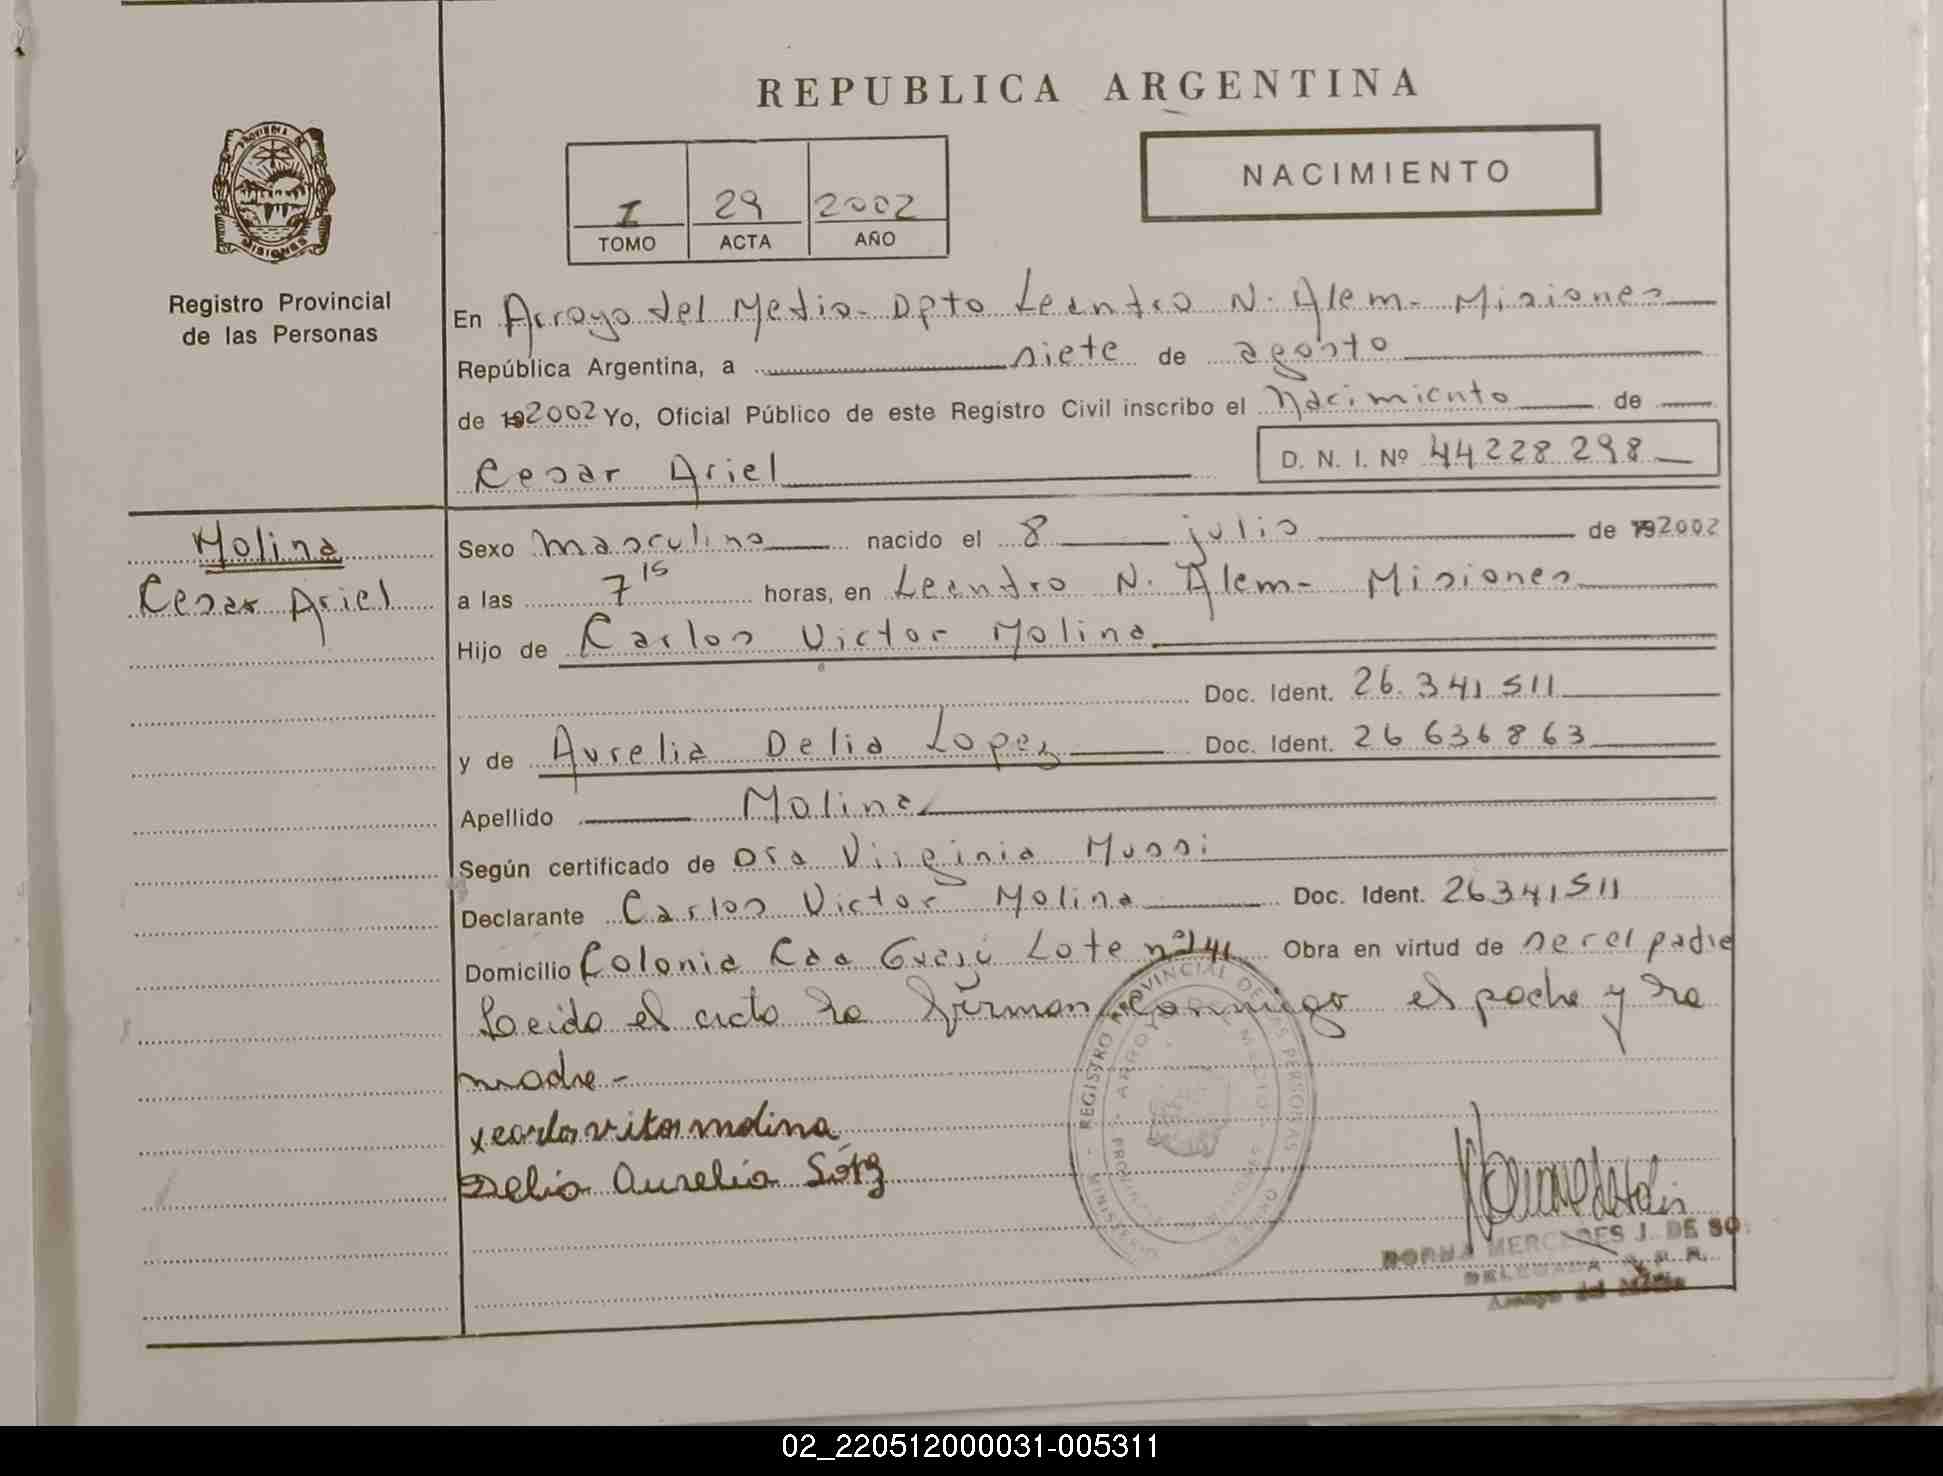 REPUBLICA ARGENTINA
PROVINCIA DE
MISIONES
Registro Provincial
de las Personas
I 29 2002
TOMO ACTA AÑO
NACIMIENTO
En Arroyo del Medio - Dpto Leandro N. Alem - Misiones
República Argentina, a siete de agosto
de 192002 Yo, Oficial Público de este Registro Civil inscribo el Nacimiento de
Cesar Ariel D. N. I. Nº 44228298
Molina
Cesar Ariel
Sexo masculino nacido el 8 julio de 192002
a las 7 15 horas, en Leandro N. Alem - Misiones
Hijo de Carlos Victor Molina
Doc. Ident. 26.341511
y de Aurelia Delia Lopez Doc. Ident. 26636863
Apellido Molina
Según certificado de Dra Virginia Mussi
Declarante Carlos Victor Molina Doc. Ident. 26341511
Domicilio Colonia Caa Guasú Lote nº 141 Obra en virtud de ser el padre
Leido el acta la firman conmigo el padre y la
madre -
x carlos vitor molina
Delia Aurelia
REGISTRO PROVINCIAL DE LAS PERSONAS
ARROYO DEL MEDIO
NORMA MERCEDES J. DE SO
DELEGADA
Arroyo del Medio
02_220512000031-005311